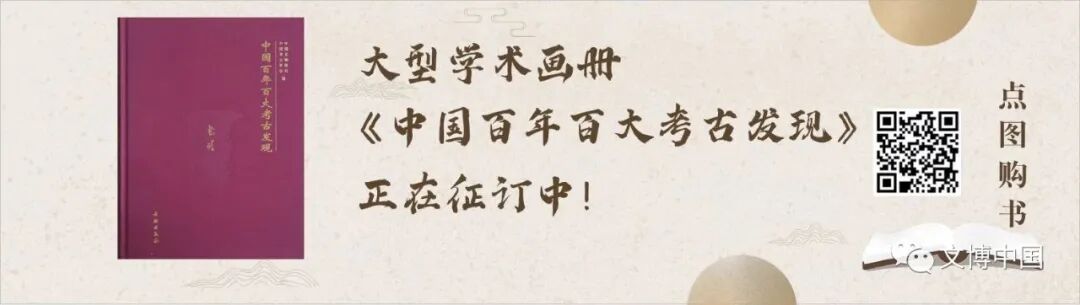 中国百年百大考古发现
文物出版社
大型学术画册
《中国百年百大考古发现》
正在征订中！
点图购书
文博中国